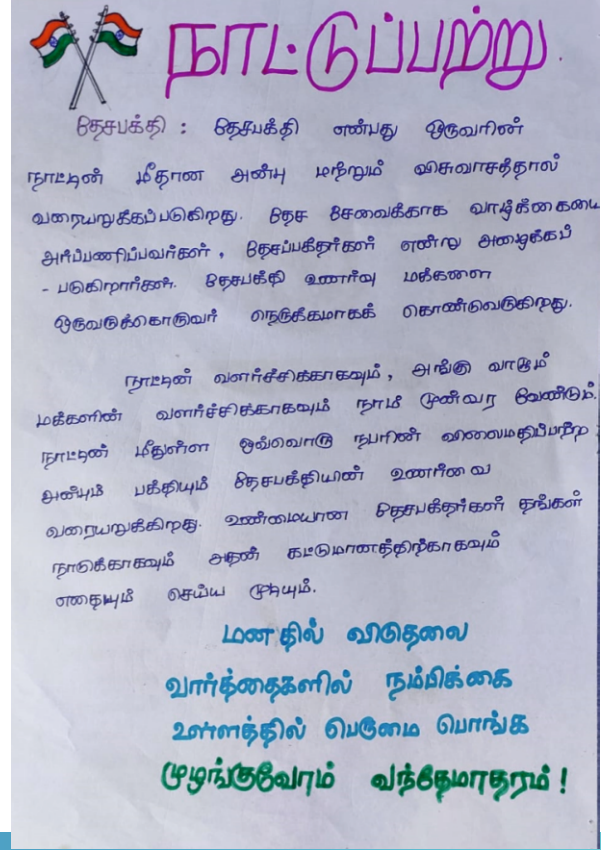 நாட்டுப்பற்று
தேசபக்தி : தேசபக்தி என்பது ஒருவரின்
நாட்டின் மீதான அன்பு மற்றும் விசுவாசத்தால்
வரையறுக்கப்படுகிறது. தேச சேவைக்காக வாழ்க்கையை
அர்ப்பணிப்பவர்கள், தேசப்பக்தர்கள் என்று அழைக்கப்
- படுகிறார்கள். தேசபக்தி உணர்வு மக்களை
ஒருவருக்கொருவர் நெருக்கமாகக் கொண்டுவருகிறது.
நாட்டின் வளர்ச்சிக்காகவும், அங்கு வாழும்
மக்களின் வளர்ச்சிக்காகவும் நாம் முன்வர வேண்டும்.
நாட்டின் மீதுள்ள ஒவ்வொரு நபரின் விலைமதிப்பற்ற
அன்பும் பக்தியும் தேசபக்தியின் உணர்வை
வரையறுக்கிறது. உண்மையான தேசபக்தர்கள் தங்கள்
நாடுக்காகவும் அதன் கட்டுமானத்திற்காகவும்
எதையும் செய்ய முடியும்.
மனதில் விடுதலை
வார்த்தைகளில் நம்பிக்கை
உள்ளத்தில் பெருமை பொங்க
முழங்குவோம் வந்தேமாதரம் !